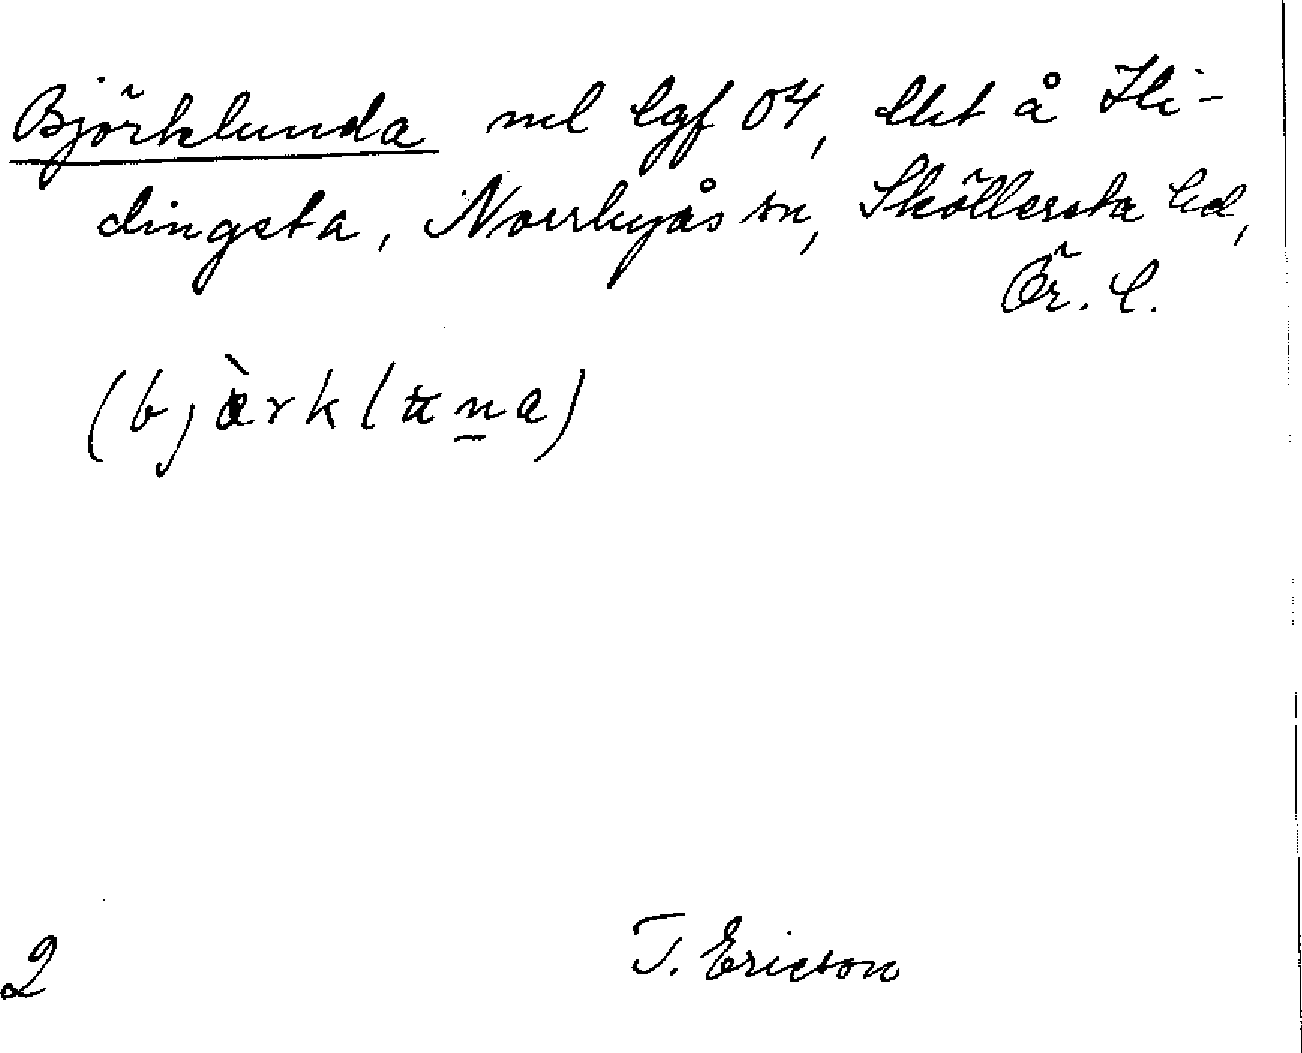 Björklunda nel lgf 04, lht å Hi-
dingsta, Norrbyås sn, Sköllersta hd,
Ör. l.
(bjärkluna)
2
T. Ericson